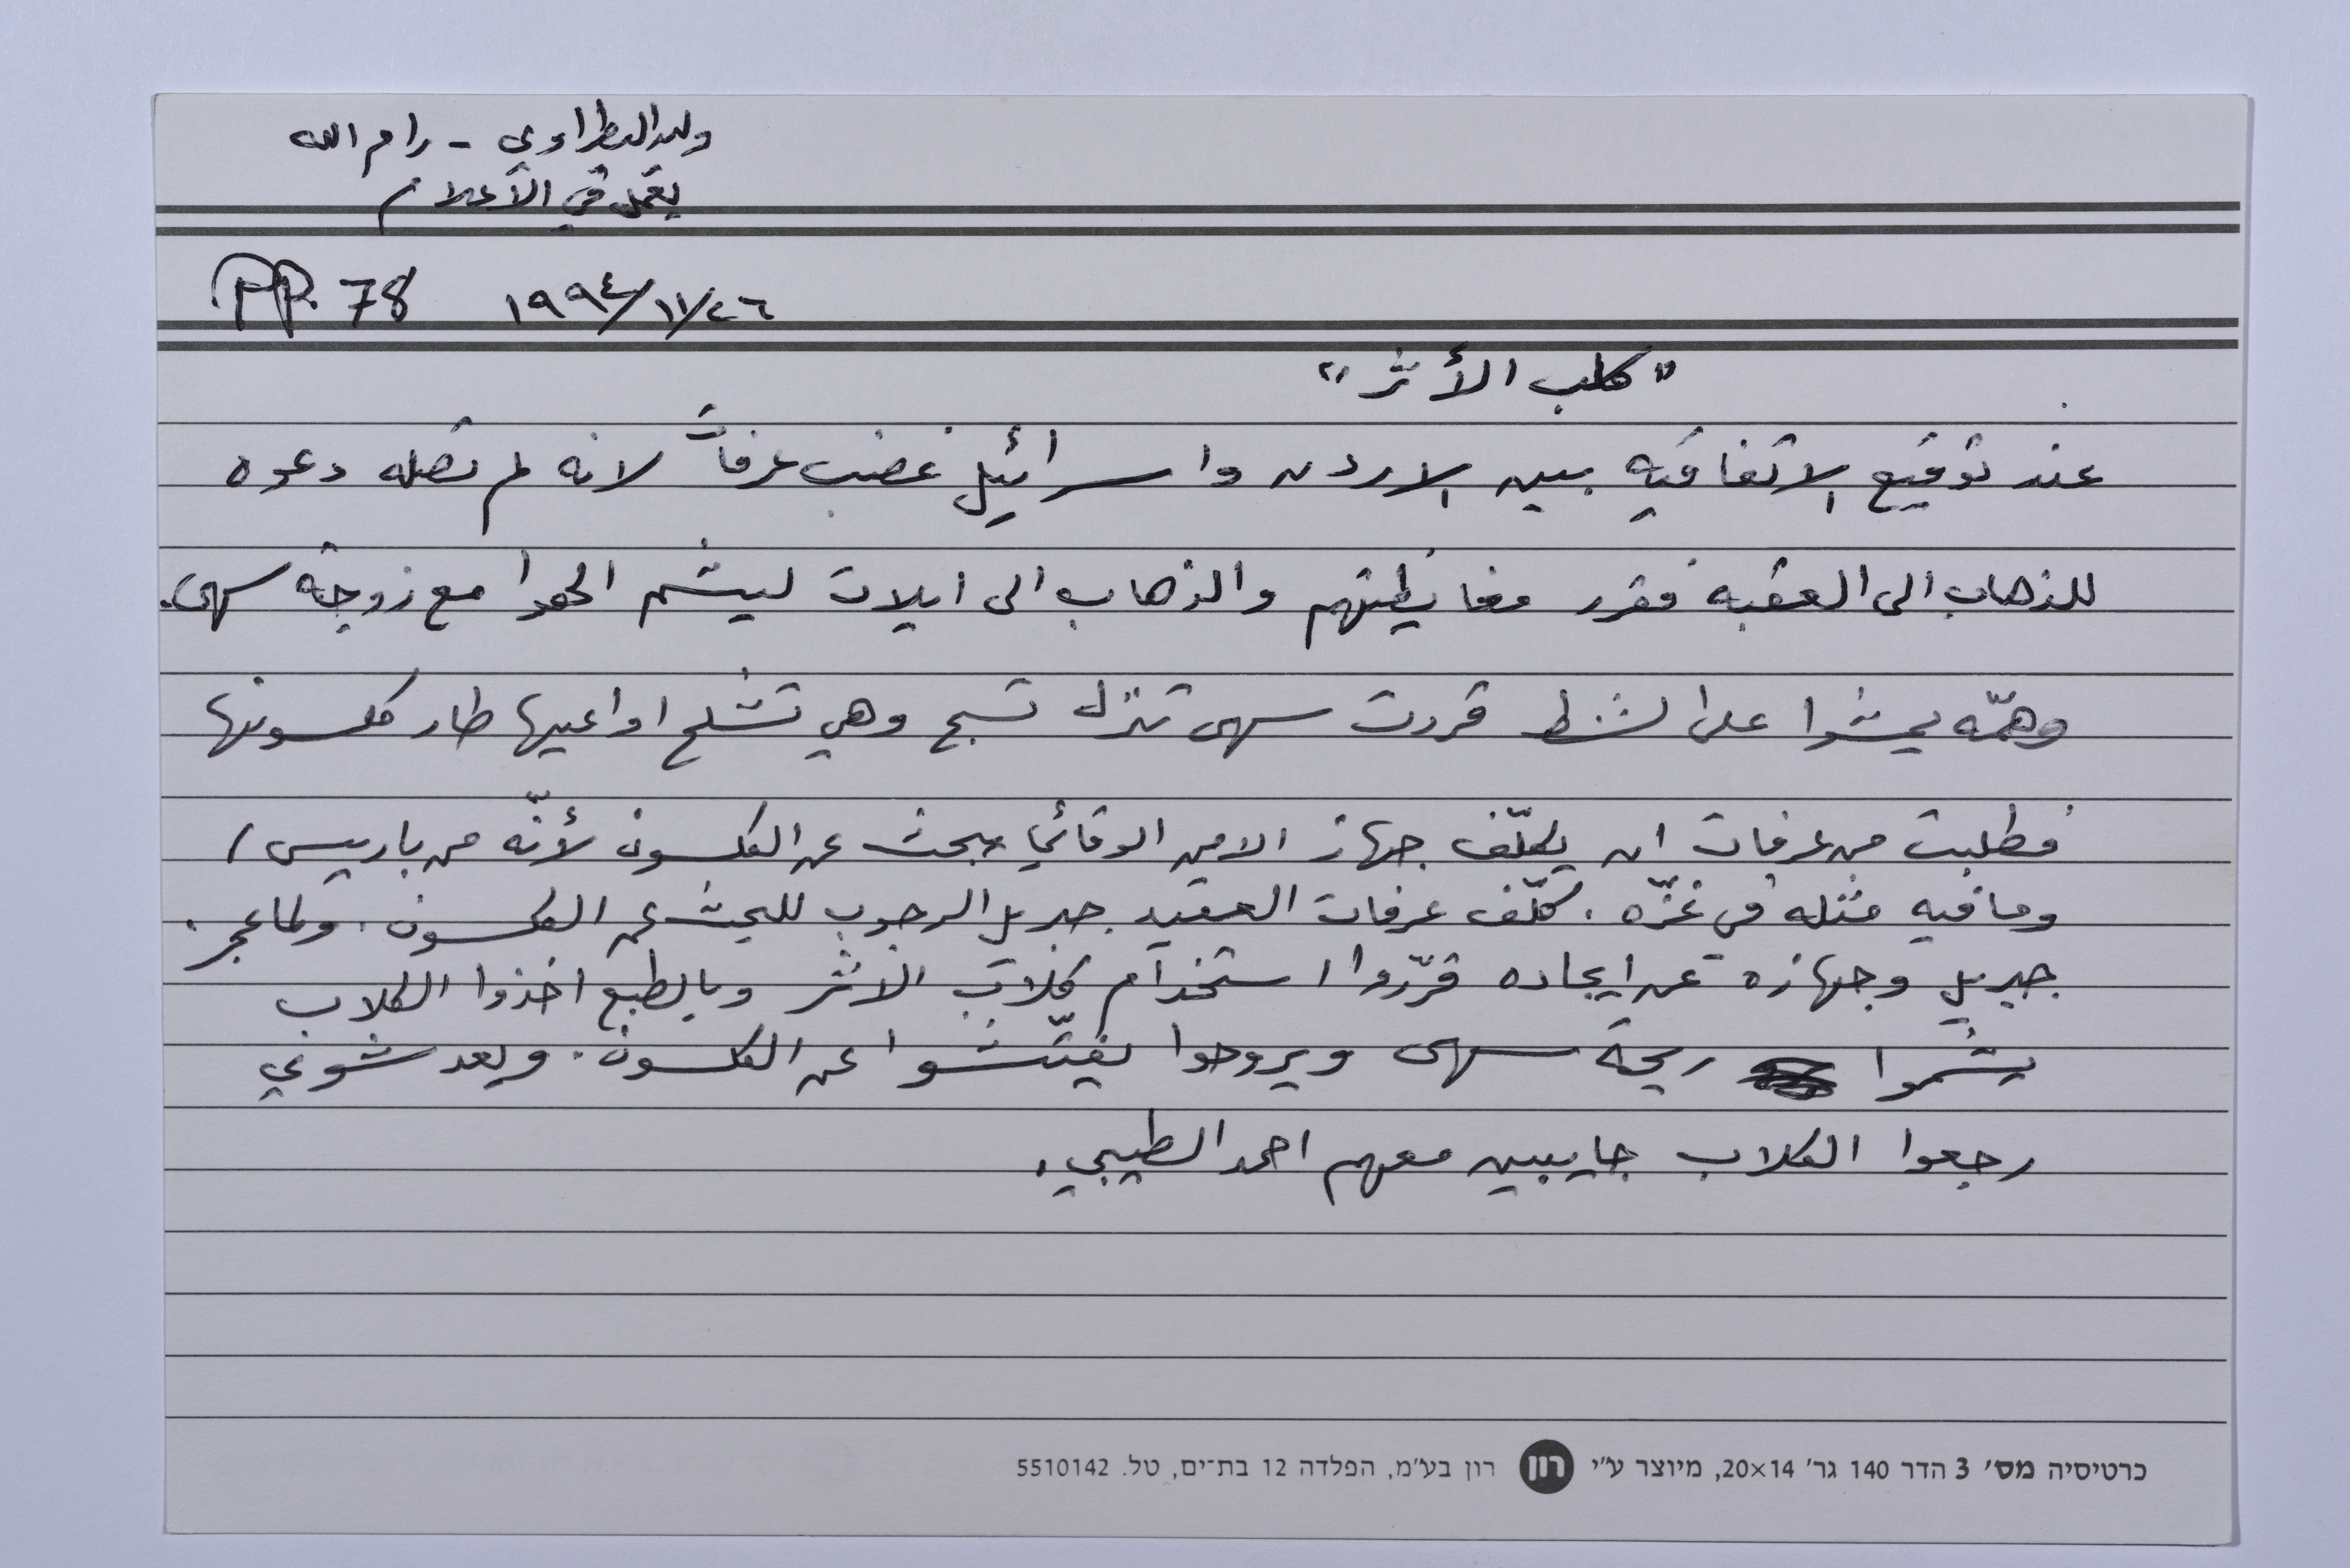 وليد البطراوي - رام الله
يعمل في الاعلام
PP. 78 ١٩٩٤/١١/٢٦
"كلب الأثر"
عند توقيع الاتفاقيه بين الاردن واسرائيل غضب عرفات لانه لم تصله دعوه
للذهاب الى العقبه فقرر مغايظتهم والذهاب الى ايلات ليشم الهوا مع زوجته سهى.
وهمّه يمشوا على الشط قررت سهى تنزل تسبح وهي تشلح اواعيها طار كلسونها
فطلبت من عرفات ان يكلّف جهاز الامن الوقائي يبحث عن الكلسون لأنّه من باريس /
وما فيه مثله في غزّه. كلّف عرفات العقيد جبريل الرجوب للبحث عن الكلسون. ولما عجز
جبريل وجهازه عن ايجاده قرّروا استخدام كلاب الاثر وبالطبع اخذوا الكلاب
يشموا ريحة سهى ويروحوا يفتّشوا عن الكلسون. وبعد شوي
رجعوا الكلاب جايبين معهم احمد الطيبي.
כרטיסיה מס׳ 3 הדר 140 גר׳ 20×14, מיוצר ע״י רון רון בע״מ, הפלדה 12 בת־ים, טל. 5510142